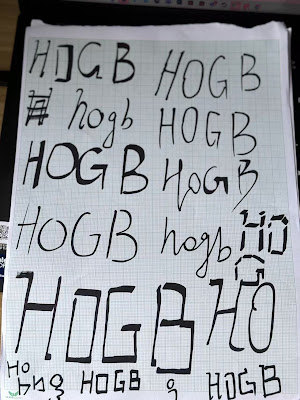 HOGB HOGB
hogb HOGB
HOGB HOGB
HOGB hogb HO
G
HOGB HO
Ho HOGB g HOGB